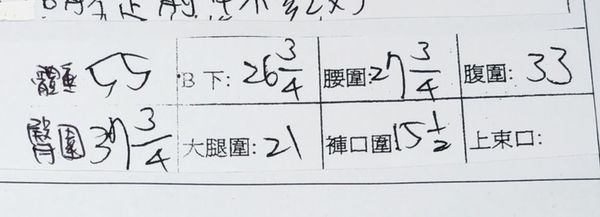 體重 55 B下: 26 3/4 腰圍: 27 3/4 腹圍: 33
臀圍 37 3/4 大腿圍: 21 褲口圍 15 1/2 上束口: